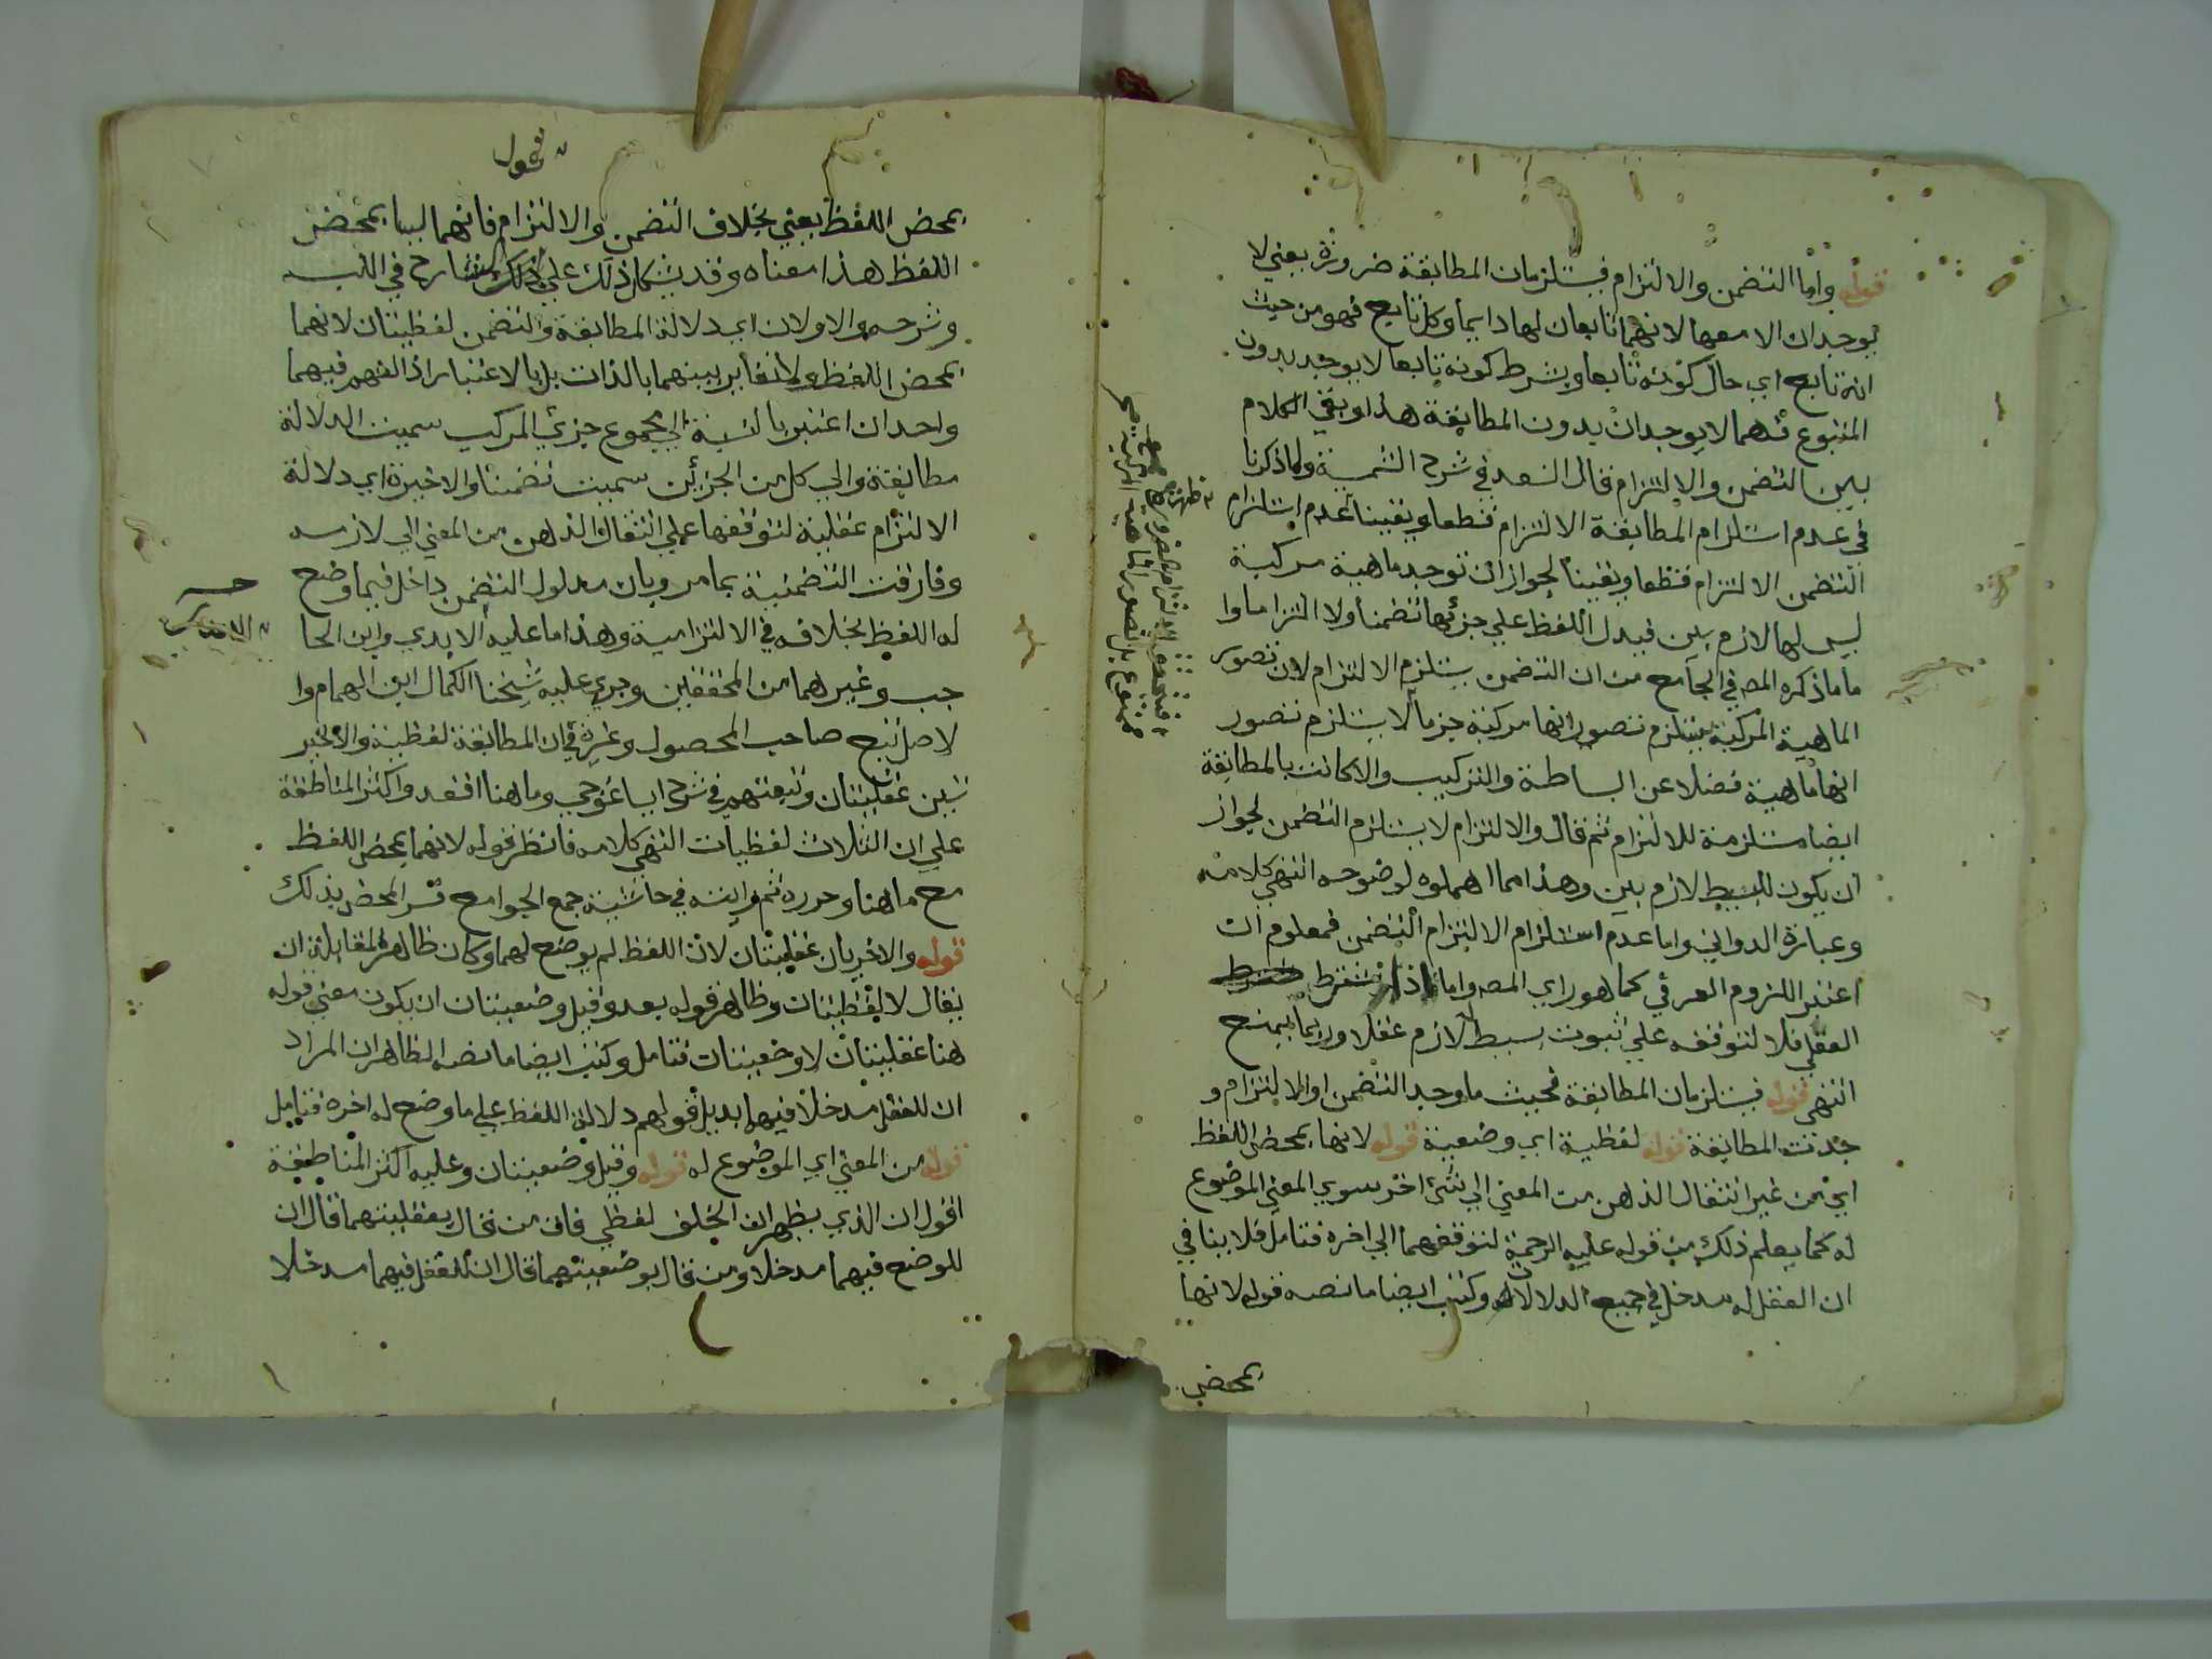 قوله واما التضمن والالتزام فيستلزمان المطابقة ضرورة يعني لا
يوجدان الا معها لانهما تابعان لها دايما وكل تابع فهو من حيث
انه تابع اي حال كونه تابعا وبشرط كونه تابعا لا يوجد بدون
المتبوع فهما لا يوجدان بدون المطابقة هذا وبقي الكلام
بين التضمن والالتزام قال السعد في شرح الشمسية ولما ذكرنا
في عدم استلزام المطابقة الالتزام قطعا ويقينا عدم استلزام
التضمن الالتزام قطعا ويقينا لجواز ان توجد ماهية مركبة
ليس لها لازم بين فيدل اللفظ على جزئها تضمنا ولا التزاما وا
ما ما ذكره المصـ في الجامع من ان التضمن يستلزم الالتزام لان تصور
الماهية المركبة يستلزم تصور انها مركبة جزما لا يستلزم تصور
انها ماهية فضلا عن البساطة والتركيب والا كانت بالمطابقة
ايضا مستلزمة للالتزام ثم قال والالتزام لا يستلزم التضمن لجواز
ان يكون للبسيط لازم بين وهذا مما اهملوه لوضوحه انتهى كلامه
وعبارة الدواني واما عدم استلزام الالتزام التضمن فمعلوم ان
اعتبر اللزوم العرفي كما هو راي المصـ واما اذا اشترط
العقلي فلا لتوقفه على ثبوت بسيط لازم عقلا وربما يمنع
انتهى قوله فيستلزمان المطابقة فحيث ما وجد التضمن او الالتزام و
جدت المطابقة قوله لفظية اي وضعية قوله لانها بمحض اللفظ
اي من غير انتقال الذهن من المعنى الى شئ اخر سوى المعنى الموضوع
له كما يعلم ذلك من قوله عليه الرحمة لتوقفهما الى اخره فتامل فلا ينافي
ان العقل له مدخل في جميع الدلالات وكتب ايضا ما نصه قوله لانها
بمحض
بمحض اللفظ يعني بخلاف التضمن والالتزام فانهما ليسا بمحض
اللفظ هذا معناه وقد يشكل ذلك على الشارح في اللب
وشرحه والاولان اي دلالة المطابقة والتضمن لفظيتان لانهما
بمحض اللفظ ولا تغاير بينهما بالذات بل بالاعتبار اذ الفهم فيهما
واحد ان اعتبر بالنسبة الى مجموع جزئي المركب سميت الدلالة
مطابقة والى كل من الجزئين سميت تضمنا والاخيرة اي دلالة
الالتزام عقلية لتوقفها على انتقال الذهن من المعنى الى لازمه
وفارقت التضمنية بما مر وبان مدلول التضمن داخل فيما وضع
له اللفظ بخلافه في الالتزامية وهذا ما عليه الابدي وابن الحا
جب وغيرهما من المحققين وجرى عليه شيخنا الكمال ابن الهمام وا
لاصل تبع صاحب المحصول وغيره في ان المطابقة لفظية والاخير
تين عقليتان وتبعتهم في شرح ايساغوجي وما هنا اقعد واكثر المناطقة
على ان الثلاث لفظيات انتهى كلامه فانظر قوله لانهما بمحض اللفظ
مع ما هنا وحرره ثم رايته في حاشية جمع الجوامع فسر المحض بذلك
قوله والاخريان عقليتان لان اللفظ لم يوضع لهما وكان ظاهر المقابلة ان
يقال لا لفظيتان وظاهر قوله بعد وقيل وضعيتان ان يكون معنى قوله
هنا عقليتان لا وضعيتان فتامل وكتب ايضا ما نصه الظاهر ان المراد
ان للعقل مدخلا فيهما بدليل قولهم دلالة اللفظ على ما وضع له اخره فتامل
قوله من المعنى اي الموضوع له قوله وقيل وضعيتان وعليه اكثر المناطقة
اقول ان الذي يظهر ان الخلف لفظي فان من قال بعقليتهما قال ان
للوضع فيهما مدخلا ومن قال بوضعيتهما قال ان للعقل فيهما مدخلا